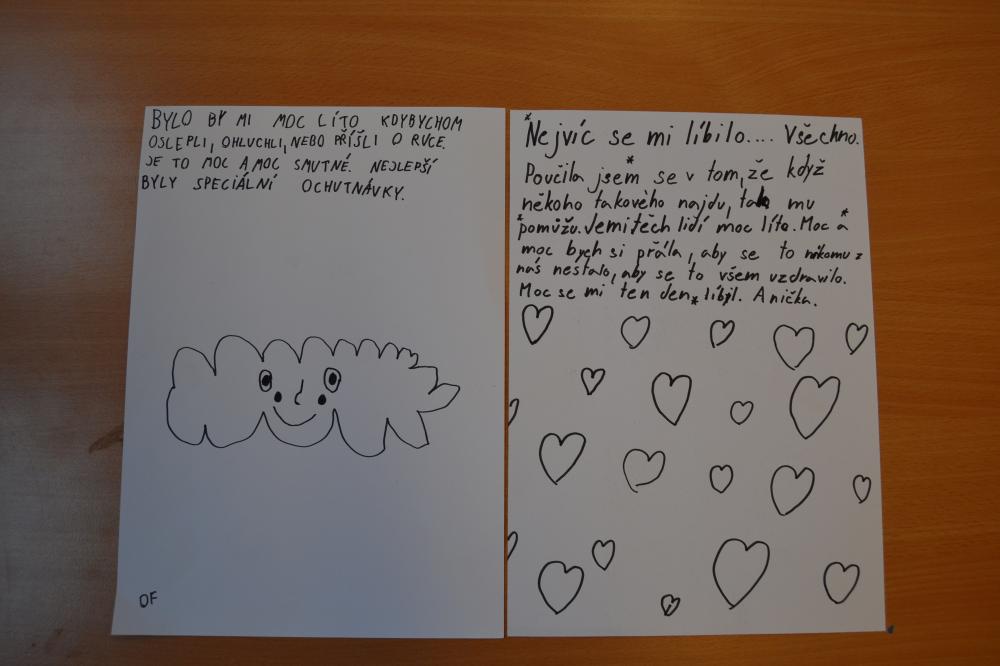 BYLO BY MI MOC LÍTO KDYBYCHOM
OSLEPLI, OHLUCHLI, NEBO PŘIŠLI O RUCE.
JE TO MOC A MOC SMUTNÉ. NEJLEPŠÍ
BYLY SPECIÁLNÍ OCHUTNÁVKY.
OF
Nejvíc se mi líbilo.... Všechno.
Poučila jsem se v tom, že když
někoho takového najdu, tak mu
pomůžu. Jemi těch lidí moc líto. Moc a
moc bych si přála, aby se to nikomu z
nás nestalo, aby se to všem uzdravilo.
Moc se mi ten den líbyl. Anička.